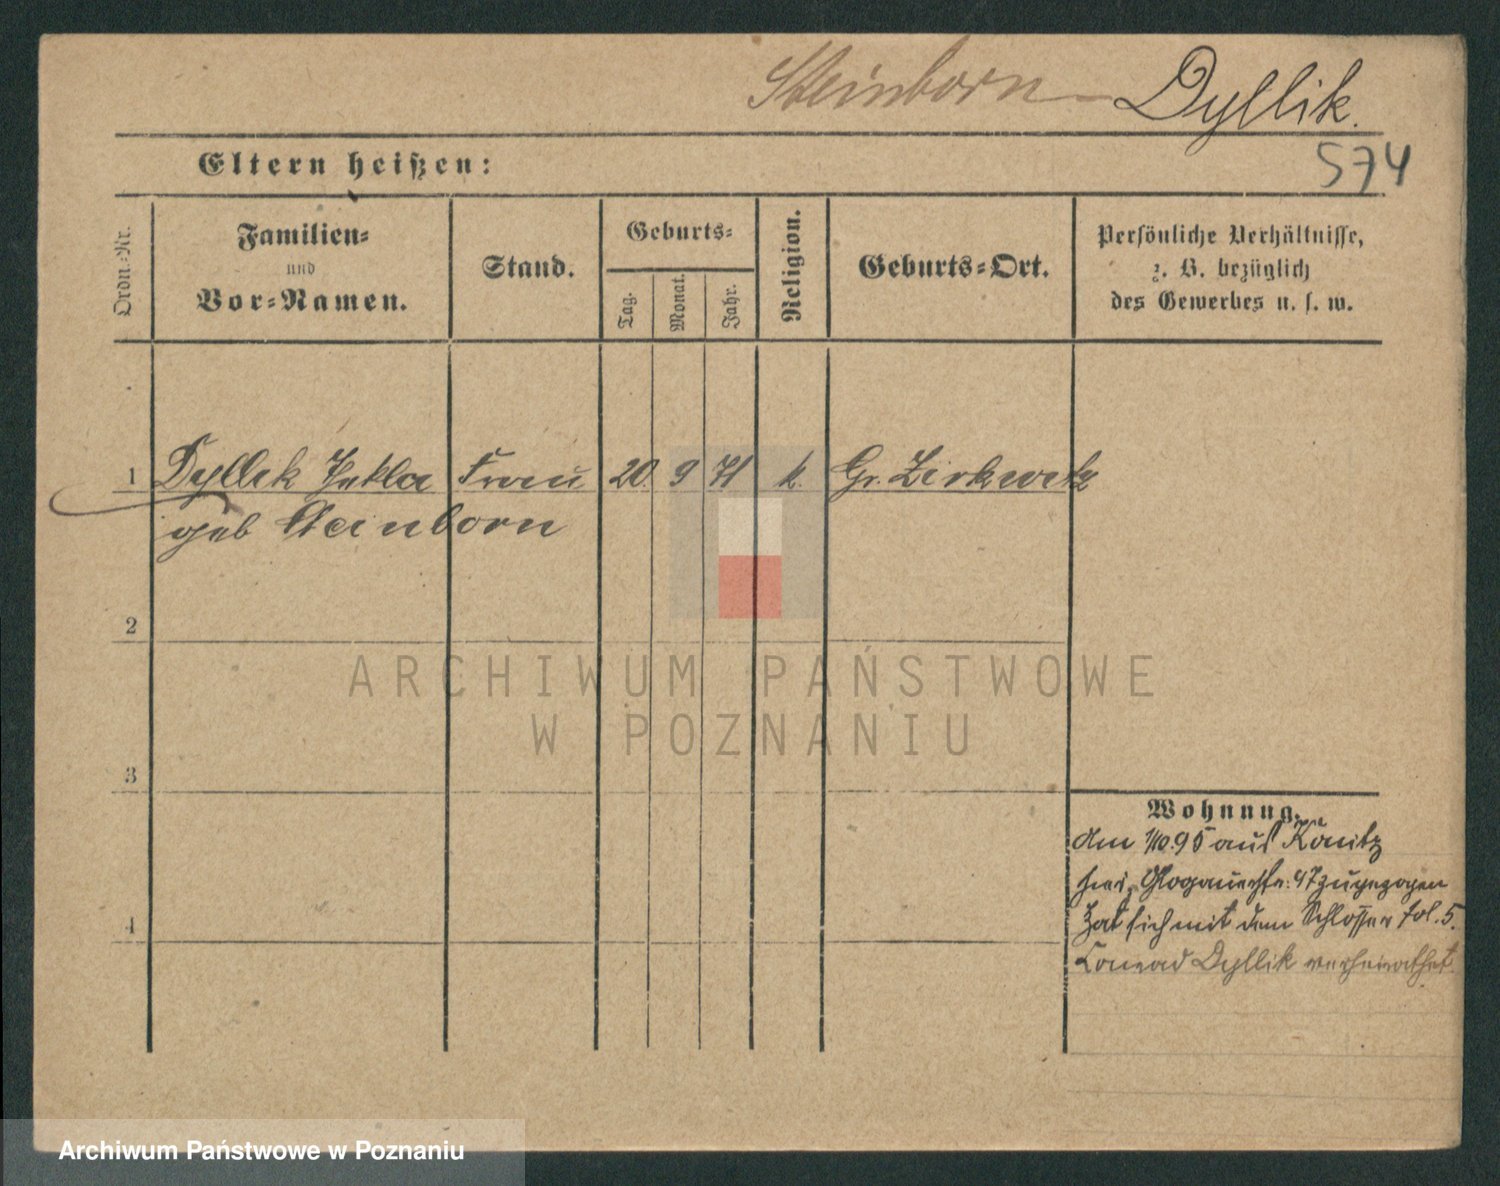 Steinborn – Dyllik.
Eltern heißen:
574
Ordn.-Nr.
Familien-
und
Vor-Namen.
Stand.
Geburts-
Tag.
Monat.
Jahr.
Religion.
Geburts-Ort.
Persönliche Verhältnisse,
z. B. bezüglich
des Gewerbes u. s. w.
1 Dyllik Thekla Frau 20. 9 71 k. Gr. Zirkwitz
geb Steinborn
2
3
4
ARCHIWUM PAŃSTWOWE
W POZNANIU
Wohnung.
Am 1/10.95 aus Konitz
hier, Glogauerstr. 47 zugezogen
Hat sich mit dem Schlosser fol. 5.
Conrad Dyllik verheirathet
Archiwum Państwowe w Poznaniu